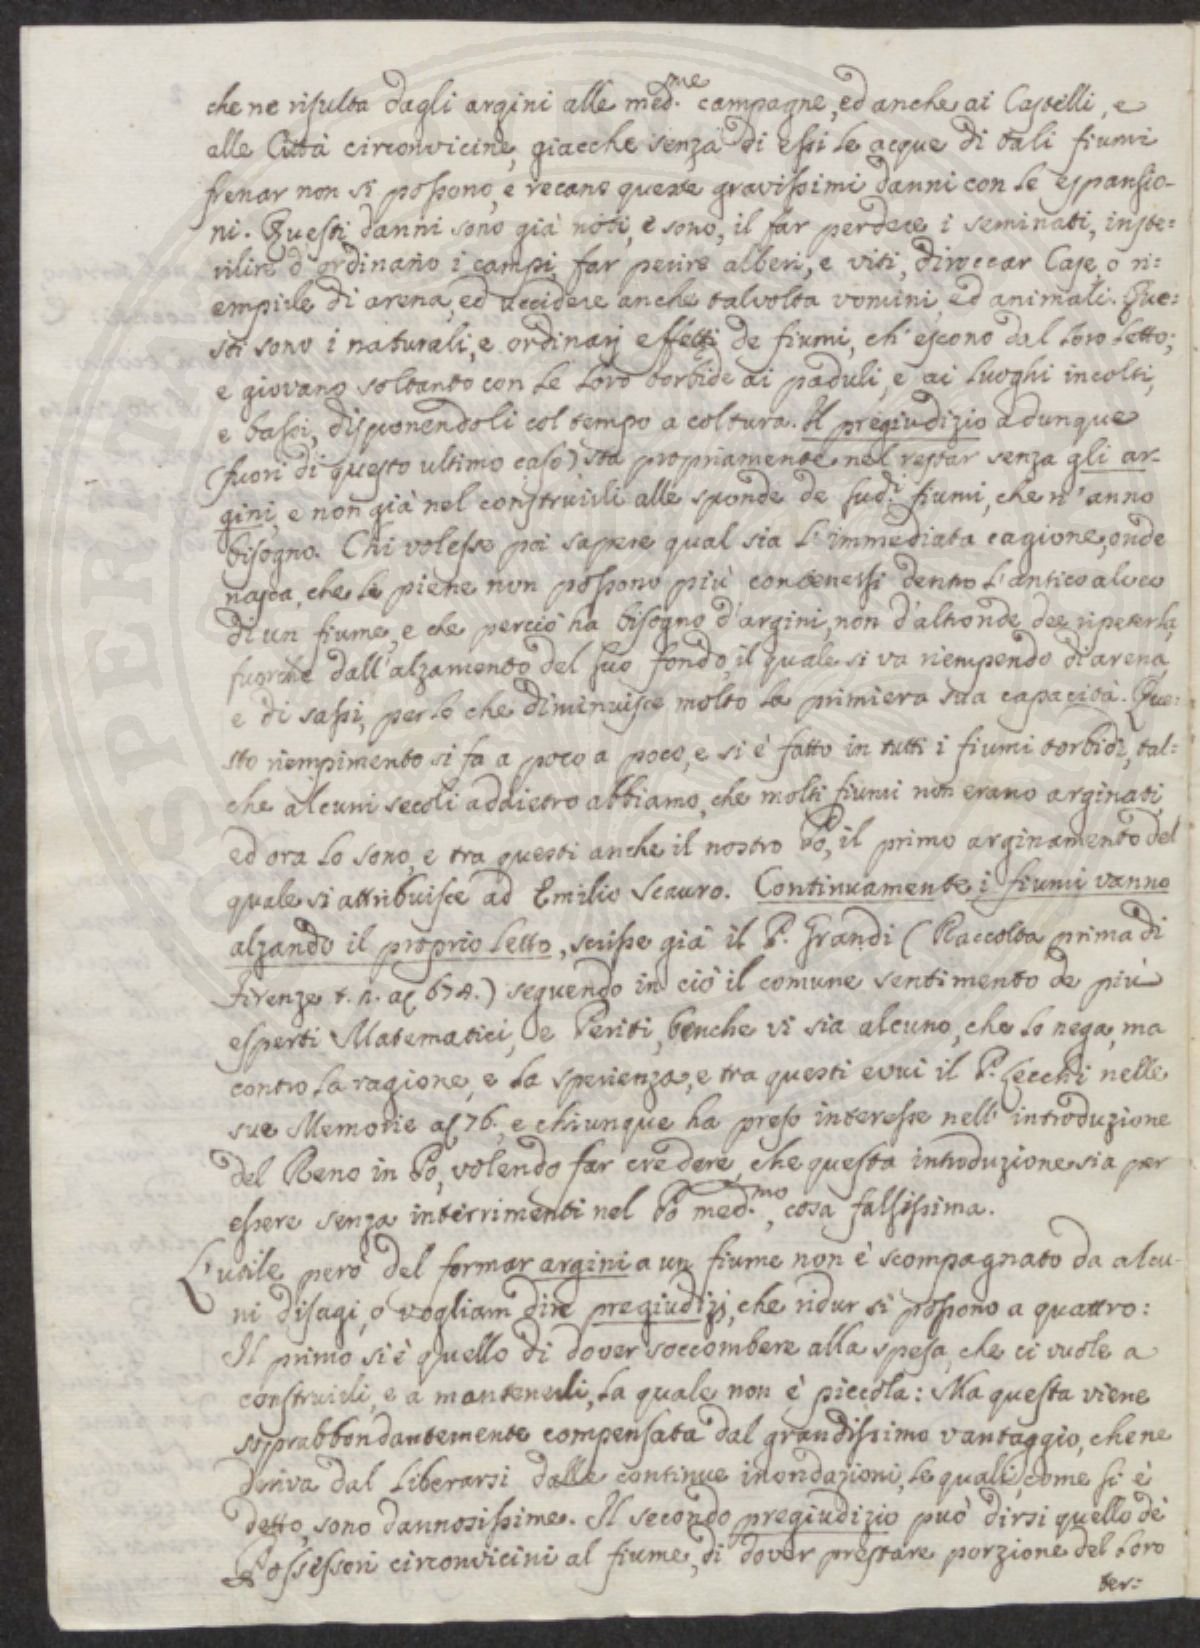 che ne risulta dagli argini alle med.sme campagne, ed anche ai Castelli, e
alle Città circonvicine, giacche senza di essi le acque di tali fiumi
frenar non si possono, e recano queste gravissimi danni con le espansio-
ni. Questi danni sono già noti, e sono, il far perdere i seminati, inste=
rilire d'ordinario i campi, far perire alberi, e viti, diroccar Case, o ri=
empirle di arena, ed uccidere anche talvolta uomini, ed animali. Que=
sti sono i naturali, e ordinarj effetti de fiumi, ch'escono dal loro letto;
e giovano soltanto con le loro torbide ai paduli, e ai luoghi incolti,
e bassi, disponendoli col tempo a coltura. Il pregiudizio adunque
(fuori di questo ultimo caso) sta propriamente nel restar senza gli ar-
gini, e non già nel construirli alle sponde de sud.i fiumi, che n'anno
bisogno. Chi volesse poi sapere qual sia l'immediata cagione, onde
nasca, che le piene non possono più contenersi dentro l'antico alveo
di un fiume, e che perciò ha bisogno d'argini, non d'altronde dee ripeterla,
fuorche dall'alzamento del suo fondo, il quale si va riempendo di arena,
e di sassi, perlo che diminuisce molto la primiera sua capacità. Que=
sto riempimento si fa a poco a poco, e si è fatto in tutti i fiumi torbidi, tal=
che alcuni secoli addietro abbiamo, che molti fiumi non erano arginati,
ed ora lo sono, e tra questi anche il nostro Pò, il primo arginamento del
quale si attribuisce ad Emilio Scauro. Continuamente i fiumi vanno
alzando il proprio letto, scrisse già il P. Grandi (Raccolta prima di
Firenze t. 2. af 674.) seguendo in ciò il comune sentimento de più
esperti Matematici, e Periti, benche vi sia alcuno, che lo nega, ma
contro la ragione, e la sperienza, e tra questi evvi il P. Lecchi nelle
sue Memorie af 76., e chiunque ha preso interesse nell'introduzione
del Reno in Pò, volendo far credere, che questa introduzione sia per
essere senza interrimenti nel Pò med.mo, cosa falsissima.
L'utile però del formar argini a un fiume non è scompagnato da alcu-
ni disagi, o vogliam dire pregiudizj, che ridur si possono a quattro:
Il primo si è quello di dover soccombere alla spesa, che ci vuole a
construirli, e a mantenerli, la quale non è piccola: Ma questa viene
soprabbondantemente compensata dal grandissimo vantaggio, che ne
deriva dal liberarsi dalle continue inondazioni, le quali, come si è
detto, sono dannosissime. Il secondo pregiudizio può dirsi quello dè
Possessori circonvicini al fiume, di dover prestare porzione del loro
ter=